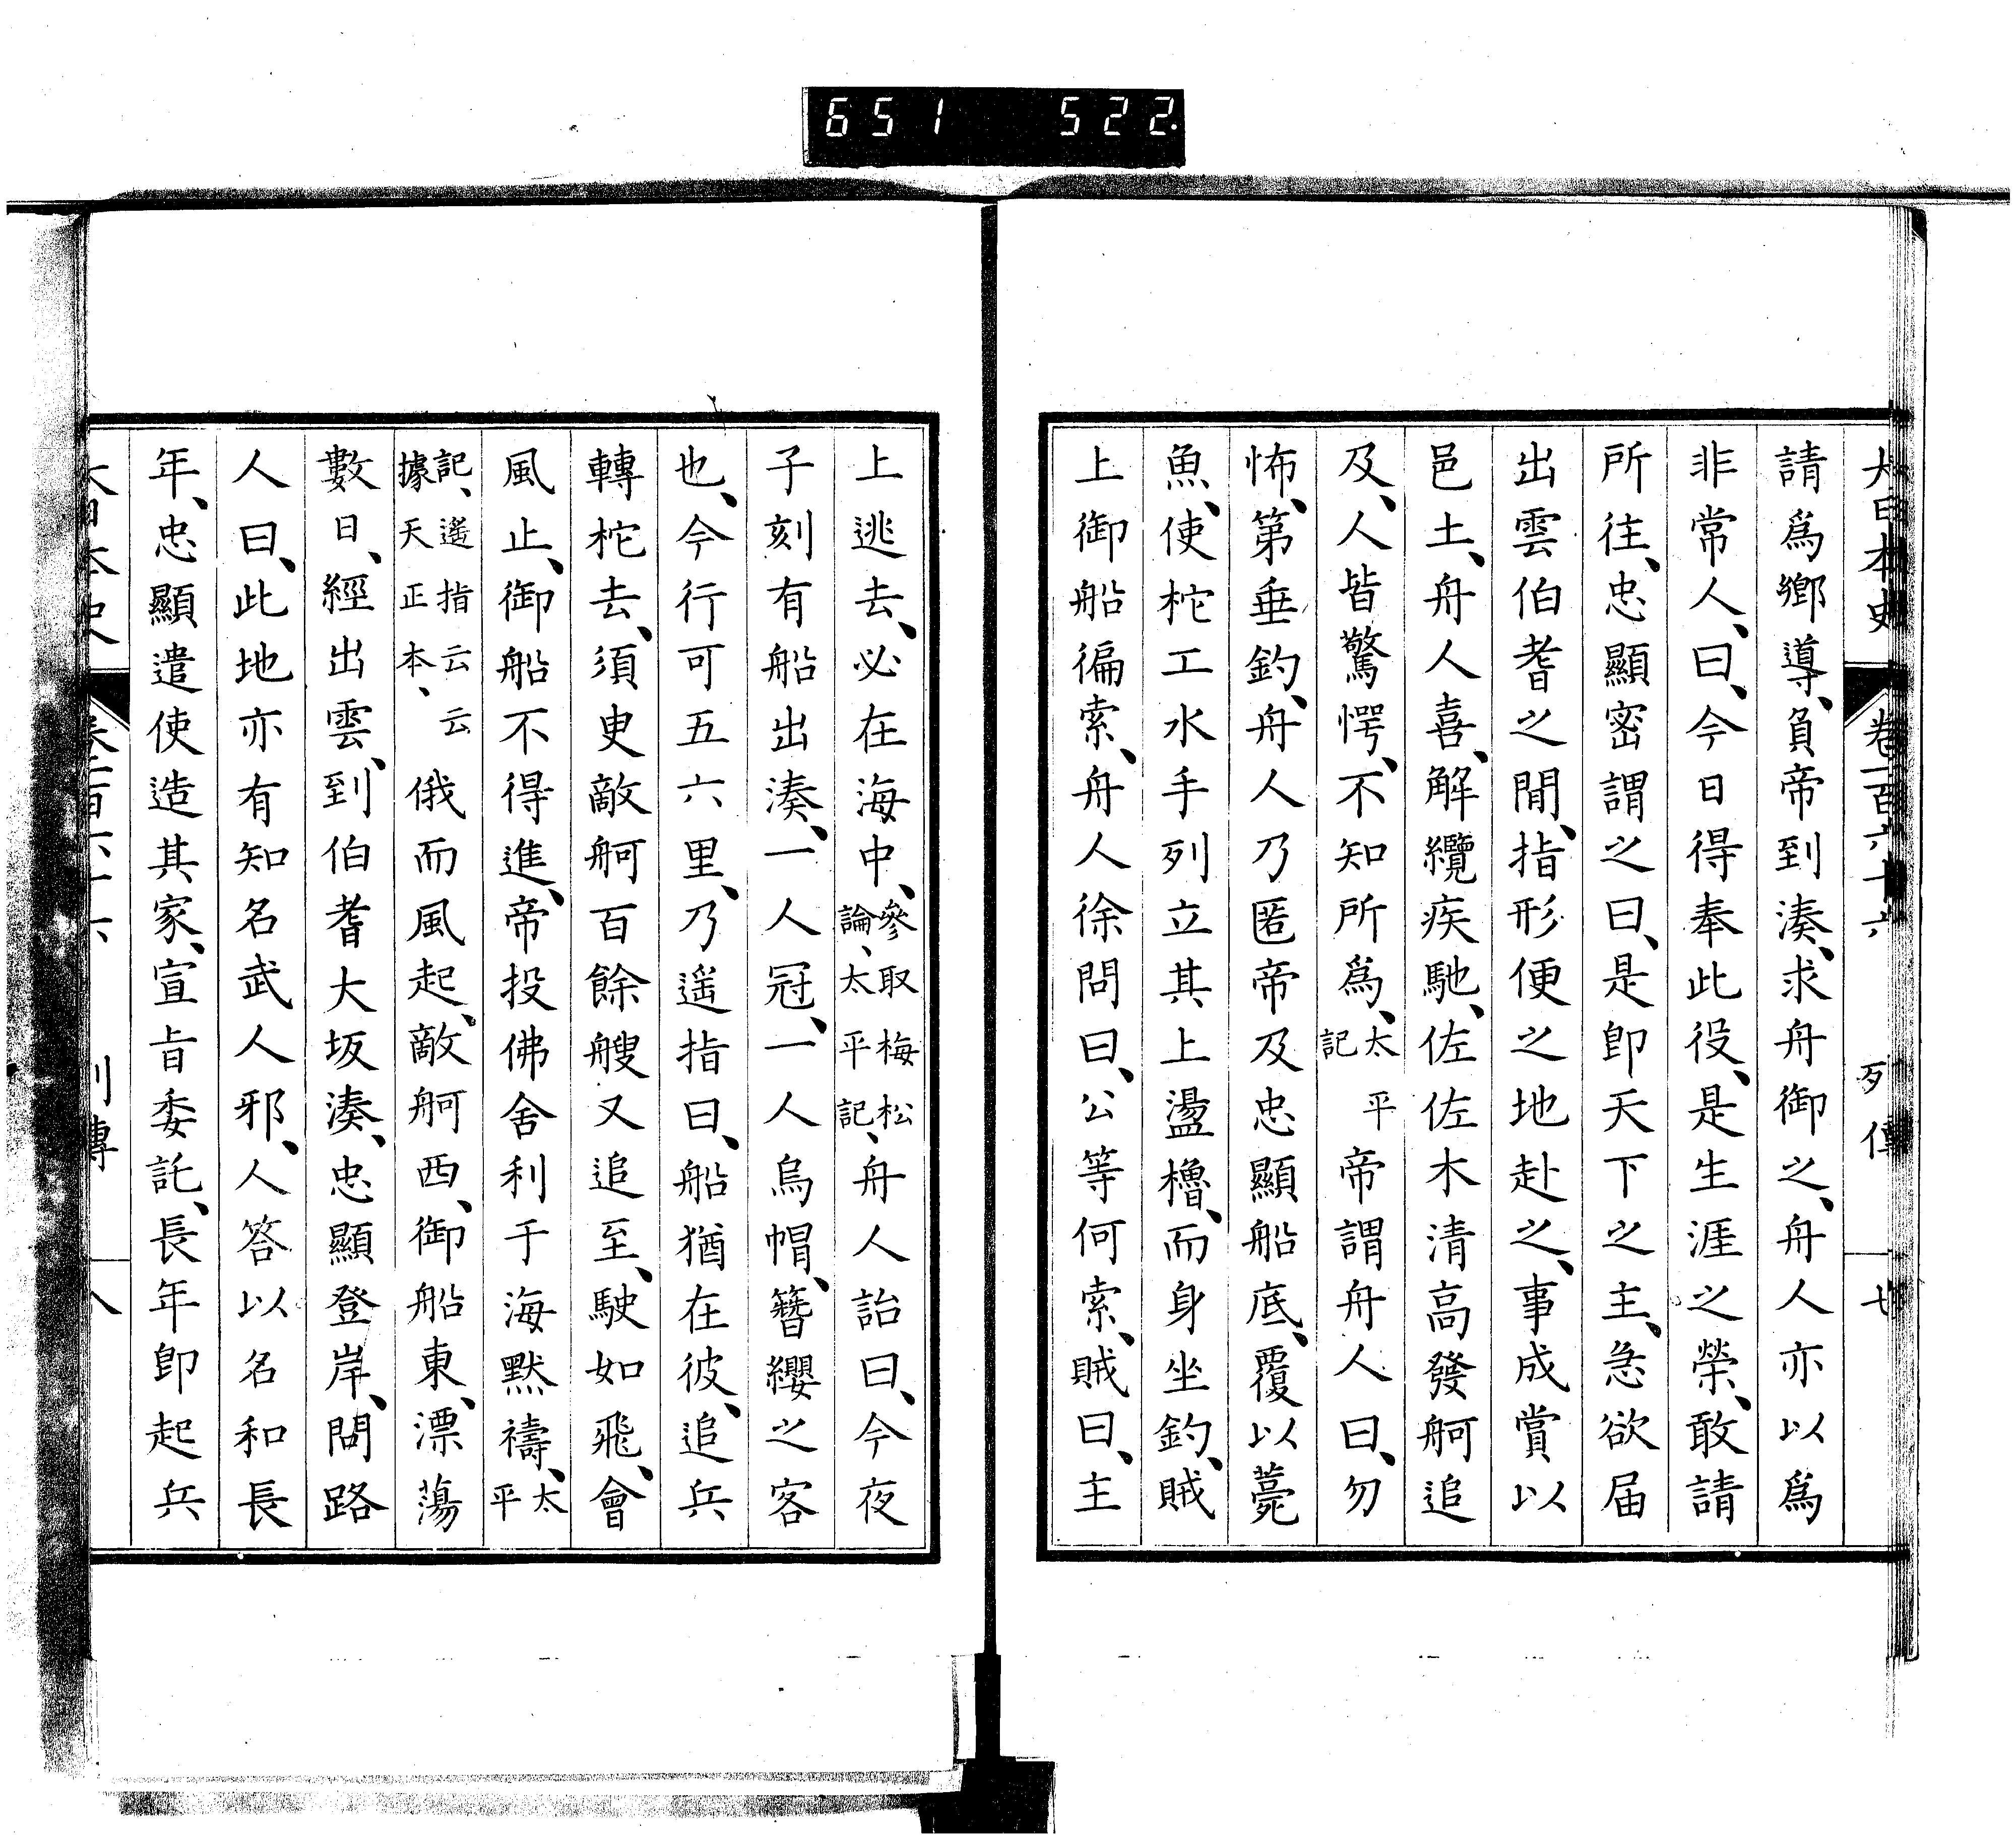 651 522
大日本史 卷一百六十六 列傳 七
請爲鄉導、負帝到湊、求舟御之、舟人亦以爲
非常人、曰、今日得奉此役、是生涯之榮、敢請
所往、忠顯密謂之曰、是卽天下之主、急欲届
出雲伯耆之間、指形便之地赴之、事成賞以
邑土、舟人喜、解纜疾馳、佐佐木清高發舸追
及、人皆驚愕、不知所爲、太平記帝謂舟人曰、勿
怖、第垂釣、舟人乃匿帝及忠顯船底、覆以薧
魚、使柁工水手列立其上盪櫓、而身坐釣、賊
上御船徧索、舟人徐問曰、公等何索、賊曰、主
上逃去、必在海中、參取梅松論、太平記、舟人詒曰、今夜
子刻有船出湊、一人冠、一人烏帽、簪纓之客
也、今行可五六里、乃遥指曰、船猶在彼、追兵
轉柁去、須臾敵舸百餘艘又追至、駛如飛、會
風止、御船不得進、帝投佛舍利于海默禱、太平
記、遙指云云據天正本、俄而風起、敵舸西、御船東、漂蕩
數日、經出雲、到伯耆大坂湊、忠顯登岸、問路
人曰、此地亦有知名武人邪、人答以名和長
年、忠顯遣使造其家、宣旨委託、長年卽起兵
大日本史 卷一百六十六 列傳 八